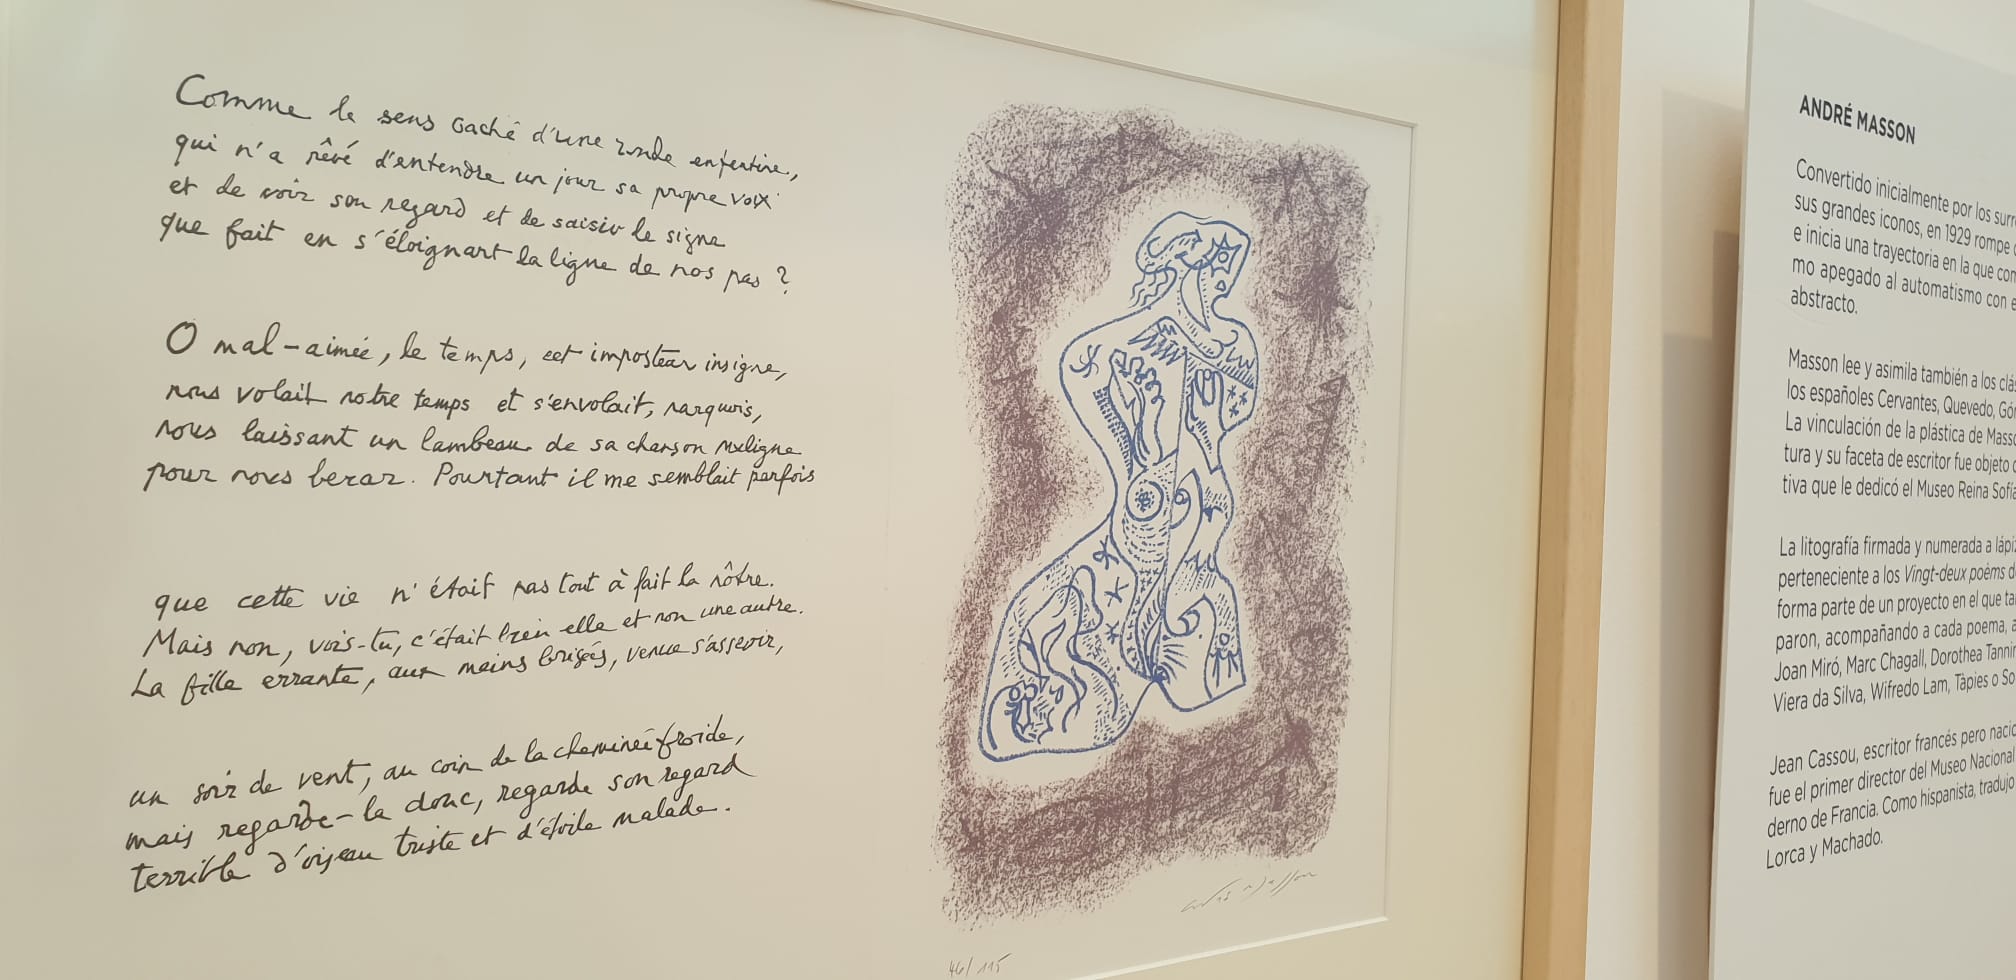 Comme le sens caché d'une ronde enfantine,
qui n'a rêvé d'entendre un jour sa propre voix
et de voir son regard et de saisir le signe
que fait en s'éloignant la ligne de nos pas ?
O mal-aimée, le temps, cet imposteur insigne,
nous volait notre temps et s'envolait, narquois,
nous laissant un lambeau de sa chanson maligne
pour nous bercer. Pourtant il me semblait parfois
que cette vie n'était pas tout à fait la nôtre.
Mais non, vois-tu, c'était bien elle et non une autre.
La fille errante, aux mains brisées, venue s'asseoir,
un soir de vent, au coin de la cheminée froide,
mais regarde-la donc, regarde son regard
terrible d'oiseau triste et d'étoile malade.
46/115
ANDRÉ MASSON
Convertido inicialmente por los
sus grandes iconos, en 1929 rompe
e inicia una trayectoria en la que
mo apegado al automatismo con
abstracto.
Masson lee y asimila también a los
los españoles Cervantes, Quevedo,
La vinculación de la plástica de
tura y su faceta de escritor fue objeto
tiva que le dedicó el Museo Reina Sofía
La litografía firmada y numerada a
perteneciente a los Vingt-deux poèms
forma parte de un proyecto en el que
paron, acompañando a cada poema,
Joan Miró, Marc Chagall, Dorothea
Viera da Silva, Wifredo Lam, Tàpies o
Jean Cassou, escritor francés pero
fue el primer director del Museo Nacional
derno de Francia. Como hispanista, tradujo
Lorca y Machado.